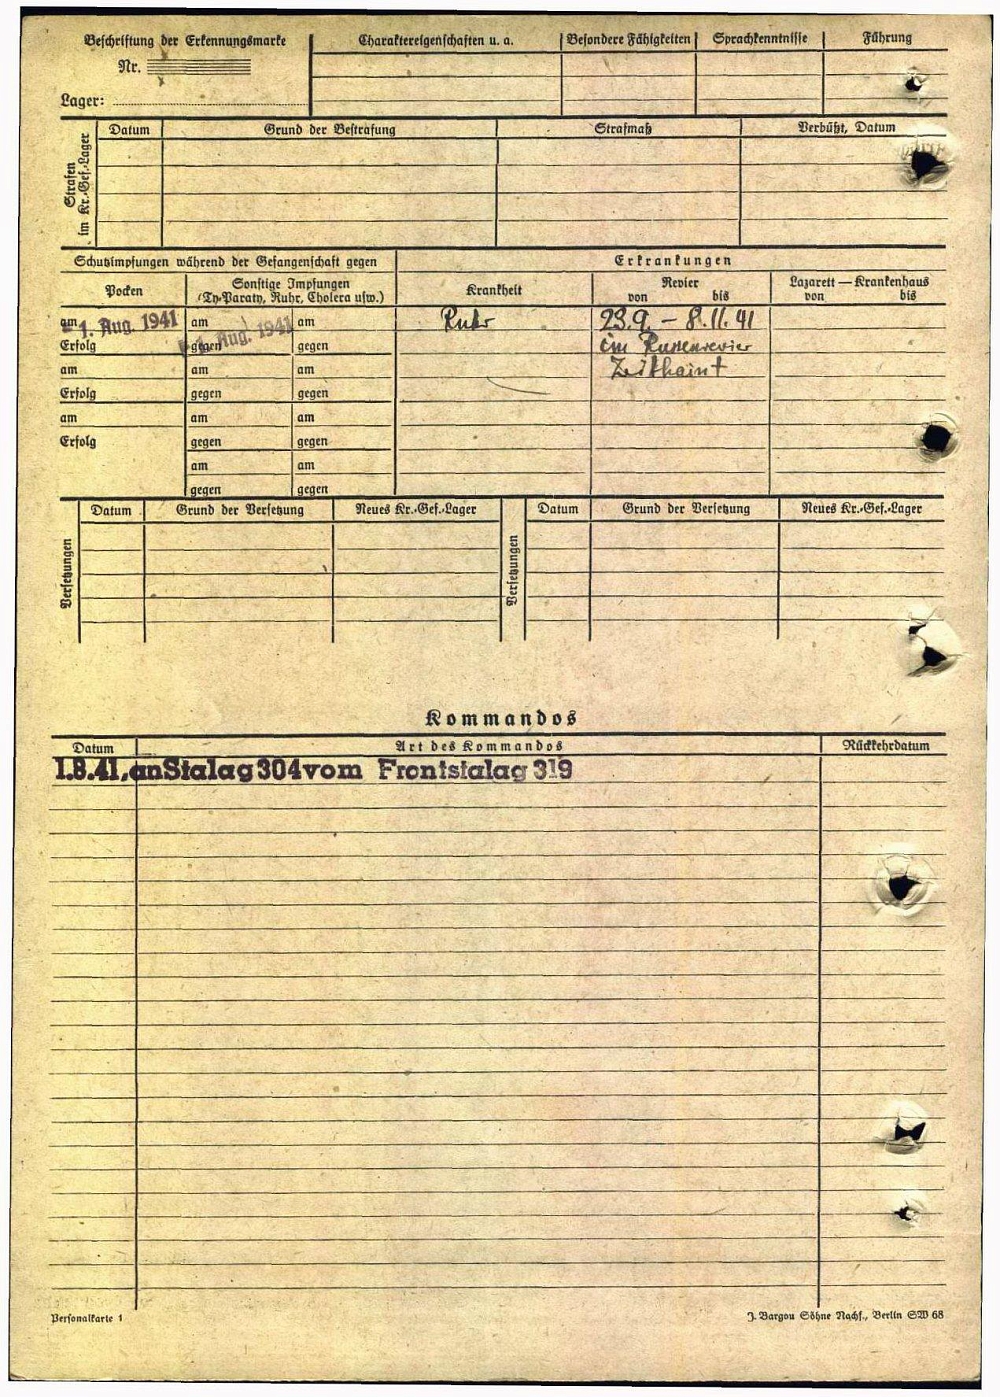 Beschriftung der Erkennungsmarke
Nr.
Lager:
Charaktereigenschaften u. a.
Besondere Fähigkeiten
Sprachkenntnisse
Führung
Strafen im Kr.-Gef.-Lager
Datum
Grund der Bestrafung
Strafmaß
Verbüßt, Datum
Schutzimpfungen während der Gefangenschaft gegen
Erkrankungen
Pocken
Sonstige Impfungen
(Ty-Paraty, Ruhr, Cholera usw.)
Krankheit
Revier
von bis
Lazarett — Krankenhaus
von bis
am - 1. Aug. 1941 am am Ruhr 23.9. - 8.11.41
Erfolg gegen 1. Aug. 1941 gegen im Russenrevier
am am am Zeithain †
Erfolg gegen gegen
am am am
Erfolg gegen gegen
am am
gegen gegen
Versetzungen
Datum
Grund der Versetzung
Neues Kr.-Gef.-Lager
Versetzungen
Datum
Grund der Versetzung
Neues Kr.-Gef.-Lager
Kommandos
Datum
Art des Kommandos
Rückkehrdatum
1.8.41, an Stalag 304 vom Frontstalag 319
Personalkarte 1
J. Bargou Söhne Nachf., Berlin SW 68